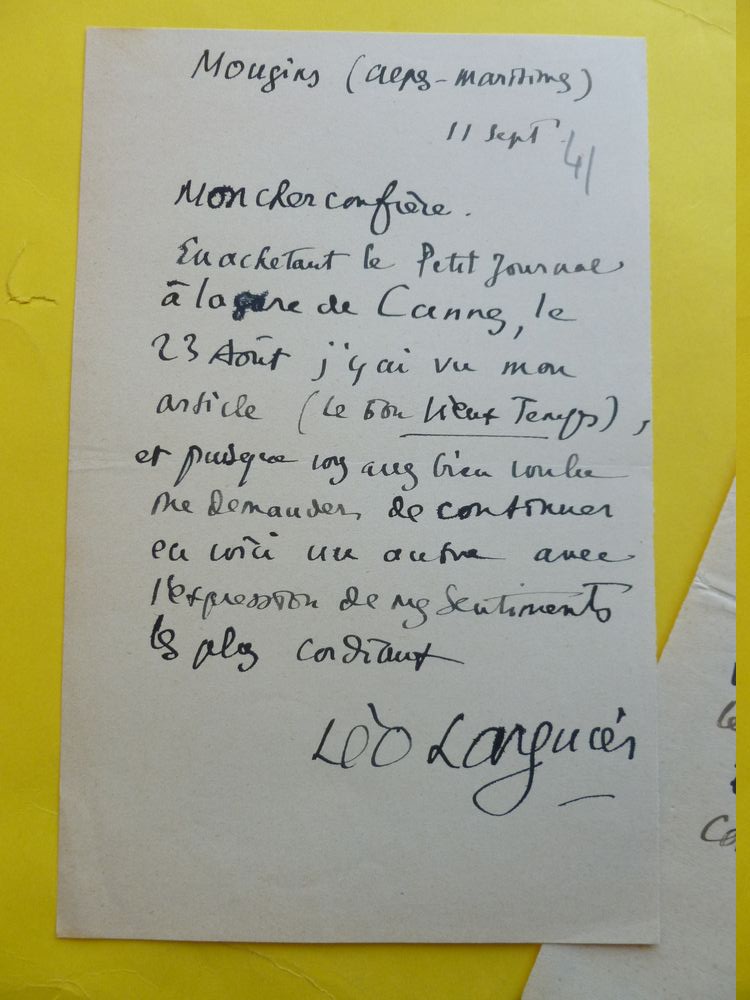 Mougins (alpes-maritimes)
11 sept
41
Mon cher confrère.
En achetant le Petit Journal
à la gare de Cannes, le
23 Août j'y ai vu mon
article (le bon vieux Temps),
et puisque vous avez bien voulu
me demander de continuer
en voici un autre avec
l'expression de mes sentiments
les plus cordiaux
Léo Larguier